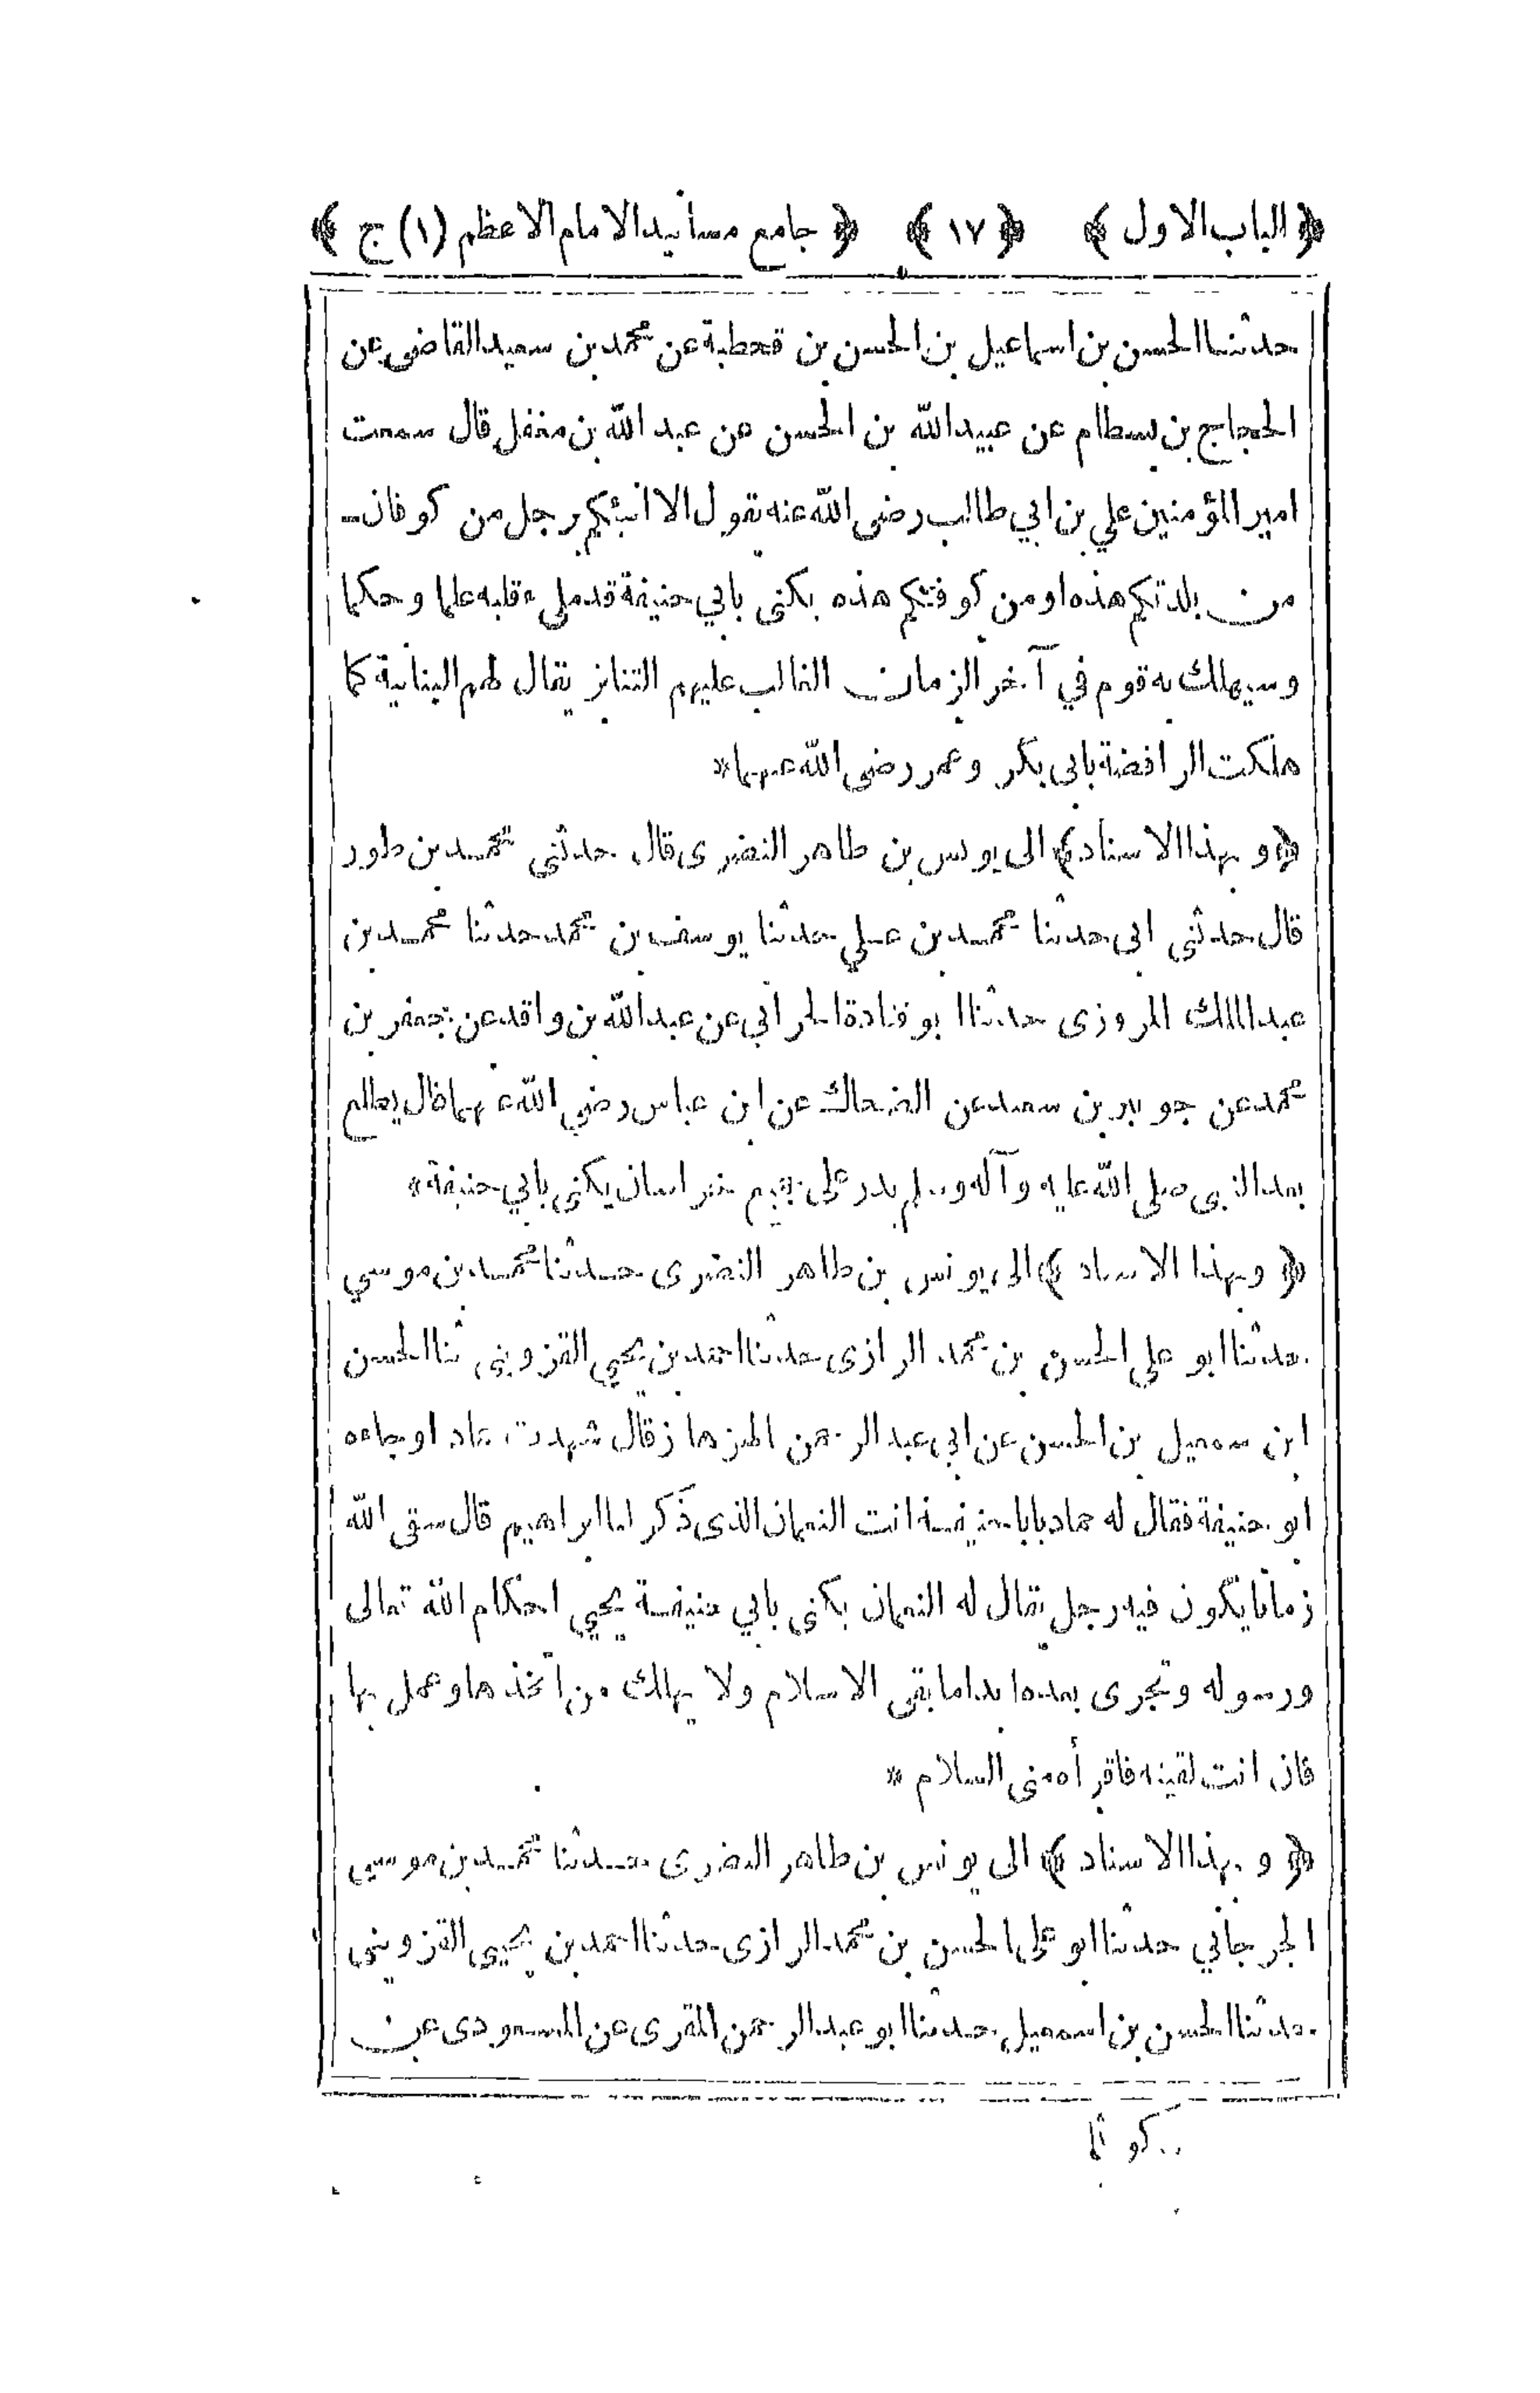 ﴿ الباب الاول ﴾ ﴿ ١٧ ﴾ ﴿ جامع مسانيد الامام الاعظم (١) ج ﴾
حدثنا الحسن بن اسماعيل بن الحسن بن قحطبة عن محمد بن سعيد القاضى عن
الحجاج بن بسطام عن عبيد الله بن الحسن عن عبد الله بن مغفل قال سمعت
امير المؤمنين علي بن ابي طالب رضى الله عنه يقول الا انبئكم برجل من كوفان
من بلدتكم هذه او من كوفتكم هذه يكنى بابي حنيفة قد ملى ء قلبه علما وحكما
وسيهلك به قوم في آخر الزمان الغالب عليهم التنابز يقال لهم البنانية كما
هلكت الرافضة بابى بكر وعمر رضى الله عنهما*
﴿ وبهذا الاسناد ﴾ الى يونس بن طاهر النضرى قال حدثنى محمد بن طور
قال حدثنى ابى حدثنا محمد بن علي حدثنا يوسف بن محمد حدثنا محمد بن
عبد الملك المروزى حدثنا ابو قتادة الحرانى عن عبد الله بن واقد عن جعفر بن
محمد عن جويبر بن سعيد عن الضحاك عن ابن عباس رضي الله عنهما قال يطلع
بعد النبى صلى الله عليه وآله وسلم بدر على جميع خراسان يكنى بابي حنيفة*
﴿ وبهذا الاسناد ﴾ الى يونس بن طاهر النضرى حدثنا محمد بن موسي
حدثنا ابو علي الحسن بن محمد الرازى حدثنا احمد بن يحيي القزوينى ثنا الحسن
ابن سمعيل بن الحسن عن ابي عبد الرحمن قال شهدت حماد او جاءه
ابو حنيفة فقال له حماد يابا حنيفة انت النعمان الذى ذكر لنا ابراهيم قال سقى الله
زمانا يكون فيه رجل يقال له النعمان يكنى بابي حنيفة يحيي احكام الله تعالى
ورسوله وتجرى بعده ابدا ما بقى الاسلام ولا يهلك من اتخذها وعمل بها
فان انت لقيته فاقرأه منى السلام *
﴿ وبهذا الاسناد ﴾ الى يونس بن طاهر النضرى حدثنا محمد بن موسي
الجرجاني حدثنا ابو على الحسن بن محمد الرازى حدثنا احمد بن يحيى القزوينى
حدثنا الحسن بن اسمعيل حدثنا ابو عبد الرحمن المقرى عن المسعودى عن